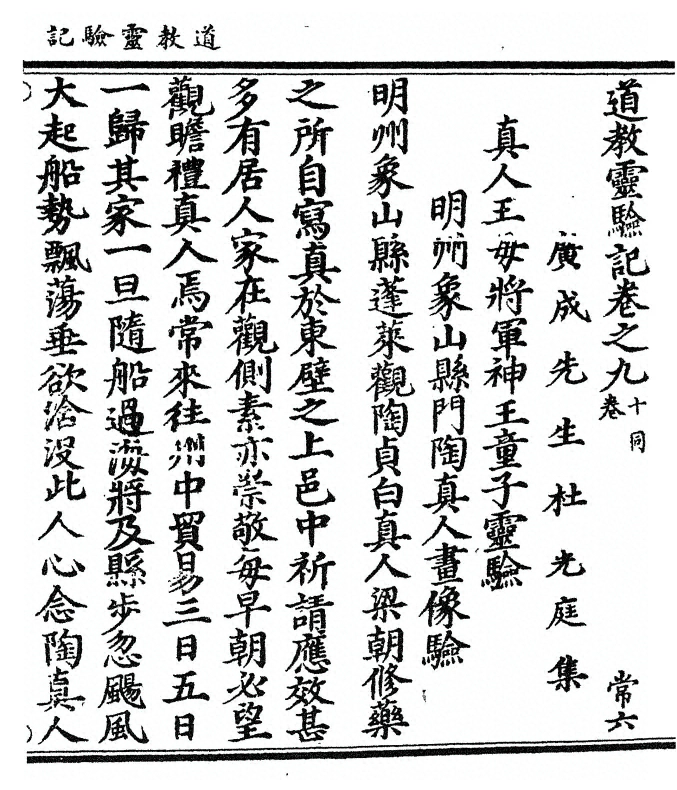 道教靈驗記
道教靈驗記卷之九 十同卷 常六
廣成先生杜光庭集
真人王母將軍神王童子靈驗
明州象山縣門陶真人畫像驗
明州象山縣蓬萊觀陶貞白真人梁朝修藥
之所自寫真於東壁之上邑中祈請應效甚
多有居人家在觀側素亦崇敬每早朝必望
觀瞻禮真人焉常來往州中貿易三日五日
一歸其家一旦隨船過海將及縣步忽颺風
大起船勢飄蕩垂欲淪沒此人心念陶真人